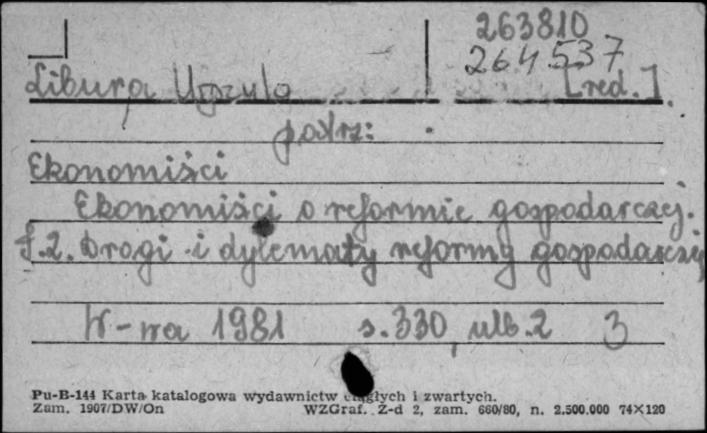 263810
264537
Libura Urszula [red.].
patrz:
Ekonomiści
Ekonomiści o reformie gospodarczej.
T.2. Drogi i dylematy reformy gospodarczej
W-wa 1981 s.330, ulb.2 3
Pu-B-144 Karta katalogowa wydawnictw ciągłych i zwartych.
Zam. 1907/DW/On WZGraf. Z-d 2, zam. 660/80, n. 2.500.000 74×120